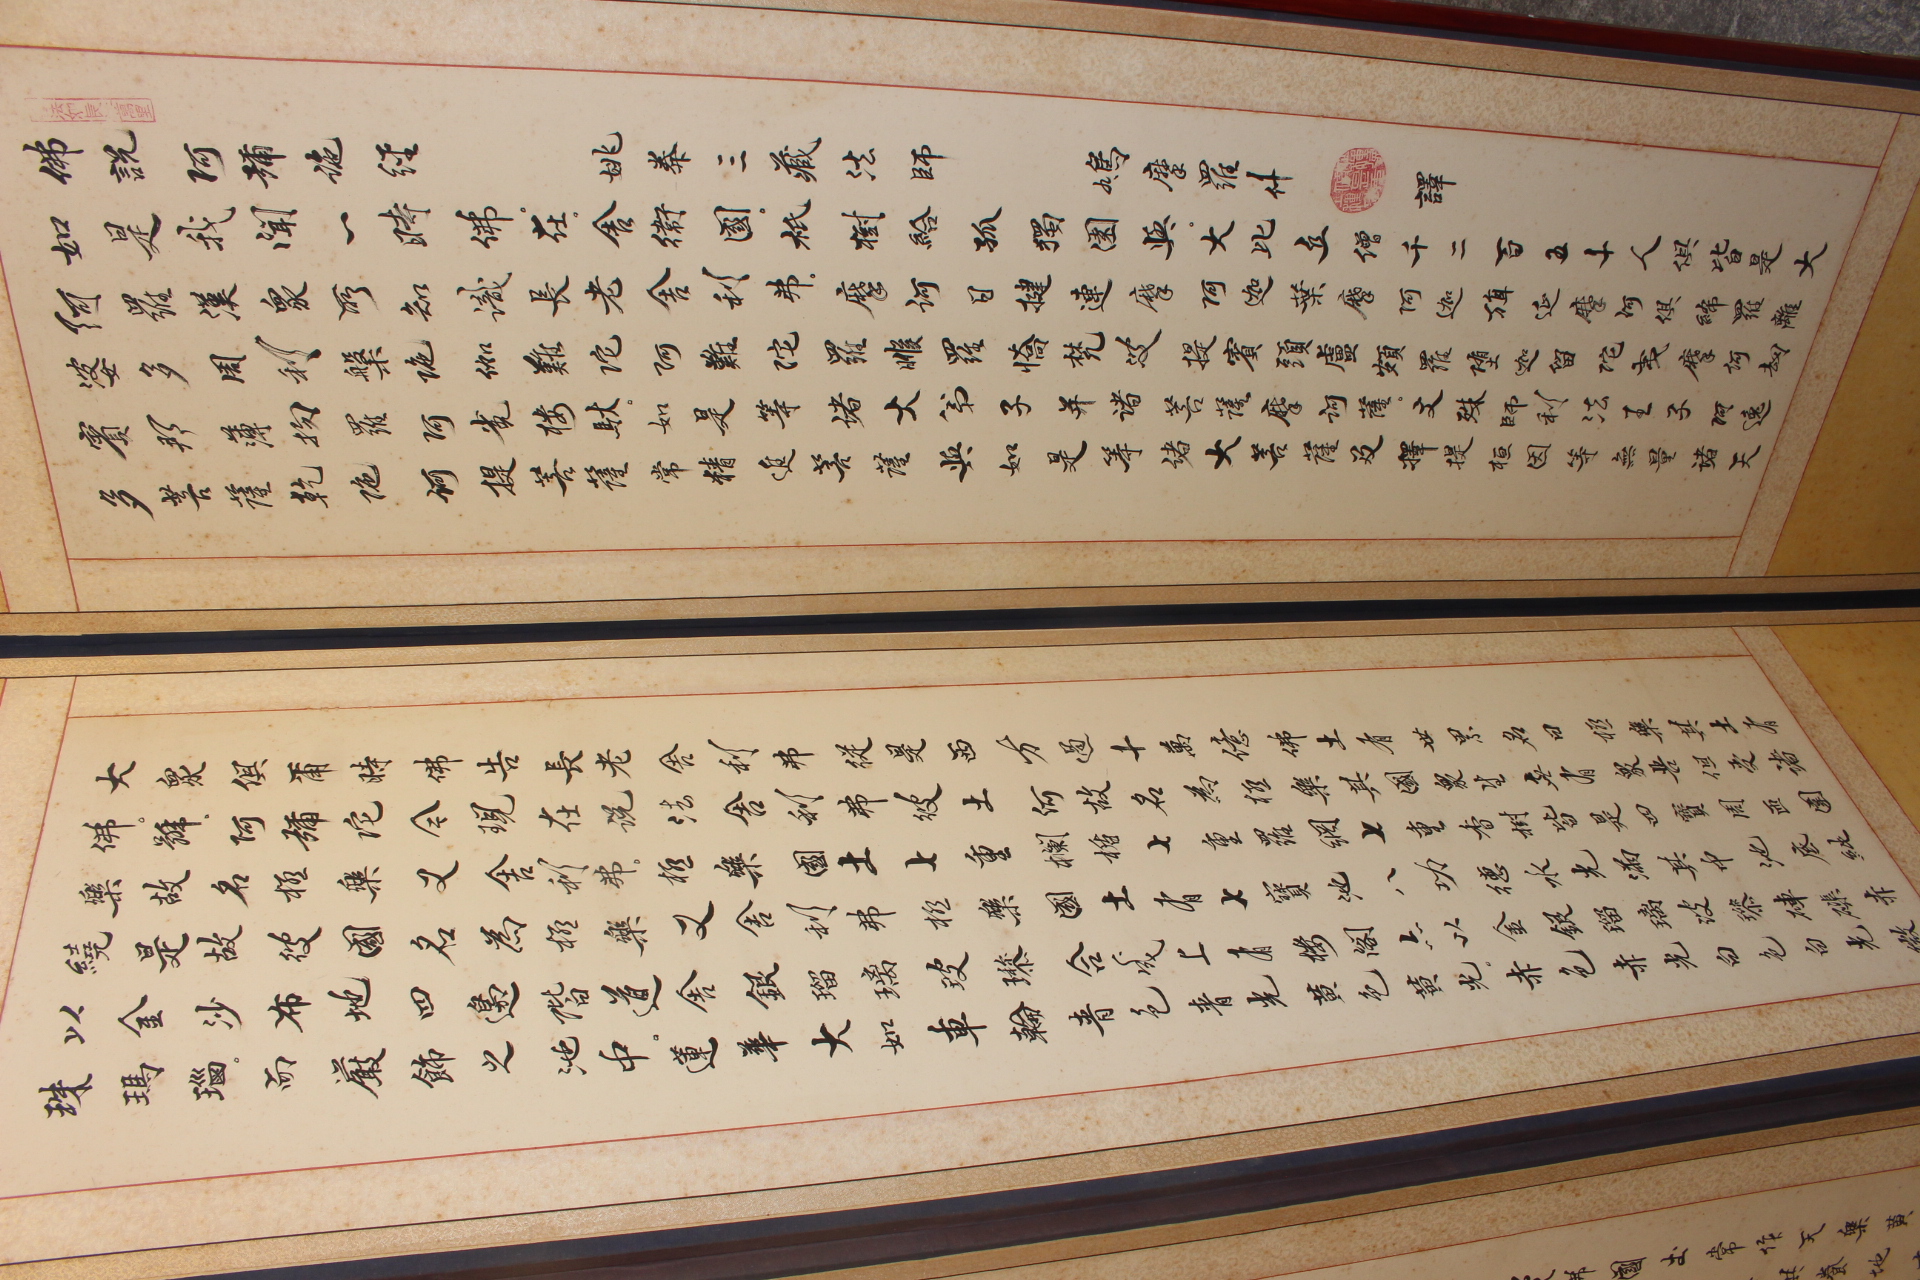 佛說阿彌陁經 姚秦三藏法師 鳩摩羅什 譯
如是我聞一時佛。在。舍衛國。祇樹給孤獨園與。大比丘僧千二百五十人俱皆是大
阿羅漢衆所知識長老舍利弗。摩訶目揵連摩阿迦葉摩阿迦旃延摩訶俱絺羅離
婆多周利槃陁伽難陀阿難陀羅睺羅憍梵波提賓頭盧頗羅堕迦留陀夷摩訶劫
賓那薄拘羅阿㝹楼馱。如是等諸大弟子并諸菩薩摩訶薩。文殊師利法王子阿逸
多菩薩乾陁訶提菩薩常精進菩薩與如是等諸大菩薩及釋提桓因等無量諸天
大衆俱爾時佛告長老舍利弗從是西方過十萬億佛土有世界名曰極樂其土有
佛。號。阿彌陀今現在说法舍利弗彼土何故名為極樂其國衆生無有衆苦但受諸
樂故名極樂又舍利弗。極樂國土七重欄楯七重羅網七重香樹皆是四寶周匝圍
繞是故彼國名為極樂又舍利弗極樂國土有七寶池八功德水光滿其中池底純
以金沙布地四邊階道舍銀瑠璃玻瓈合成上有樓阁亦以金銀瑠璃玻瓈硨磲赤
珠瑪瑙。而嚴飾之池中。蓮華大如車輪青色青光黄色黄光。赤色赤光白色白光微
佛國土常作天樂黄